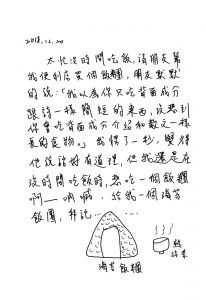 2018.12.20
太忙沒時間吃飯,請朋友幫
我便利店買個飯糰,朋友默默
的說:「我以為你只吃背面成分
跟詩一樣簡短的東西,沒想到
你會吃背面成分介紹和散文一樣
長的食物。」我愣了一秒,覺得
他說話好有道理,但我還是在
沒時間吃飯時,想吃一個飯糰
啊——吶喊,給我一個海苔
飯團,拜託......
海苔飯糰